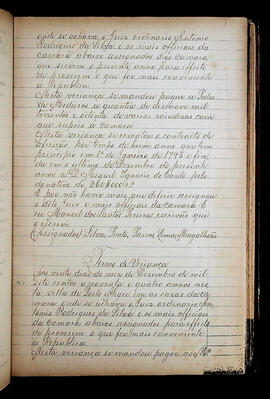 onde se achava o Juiz ordinario Antonio
Rodrigues da Silva e os mais officiaes da
camara abaixo assignados digo camara
que servem o presente anno para effeito
de proverem o que for mais conveniente
á Republica.
Nesta veriança se mandou pagar a Pedro
de Medeiros a quantia de desenove mil
trezentos e oitenta de varias miudezas com
que suprio a camara
Nesta veriança se rematou o contracto de
afferição por tempo de hum anno que tem
principio em 1º de Janeiro de 1795 e fin-
da em o ultimo de Dezembro do presente
anno a D. Miguel Ignacio do Canto pelo
donativo de 260#000 rs
E por não haver mais que deferir assignou
o dito Juiz e mais officiaes da camara E
eu Manoel dos Santos Pereira escrivão que
o escrevi
(Assignados) Silva, Pinto, Lima, Magalhães
Termo de Veriança
Aos vinte dias do mez de Dezembro de mil
sete centos e noventa e quatro annos nes-
ta villa de Porto Alegre em as casas da ca-
mara onde se achava o Juiz ordinario An-
tonio Rodrigues da Silva e os mais officiaes
da camara abaixo assignados para effeito
de proverem o que for mais conveniente
á Republica
Nesta veriança se mandou pagar aos